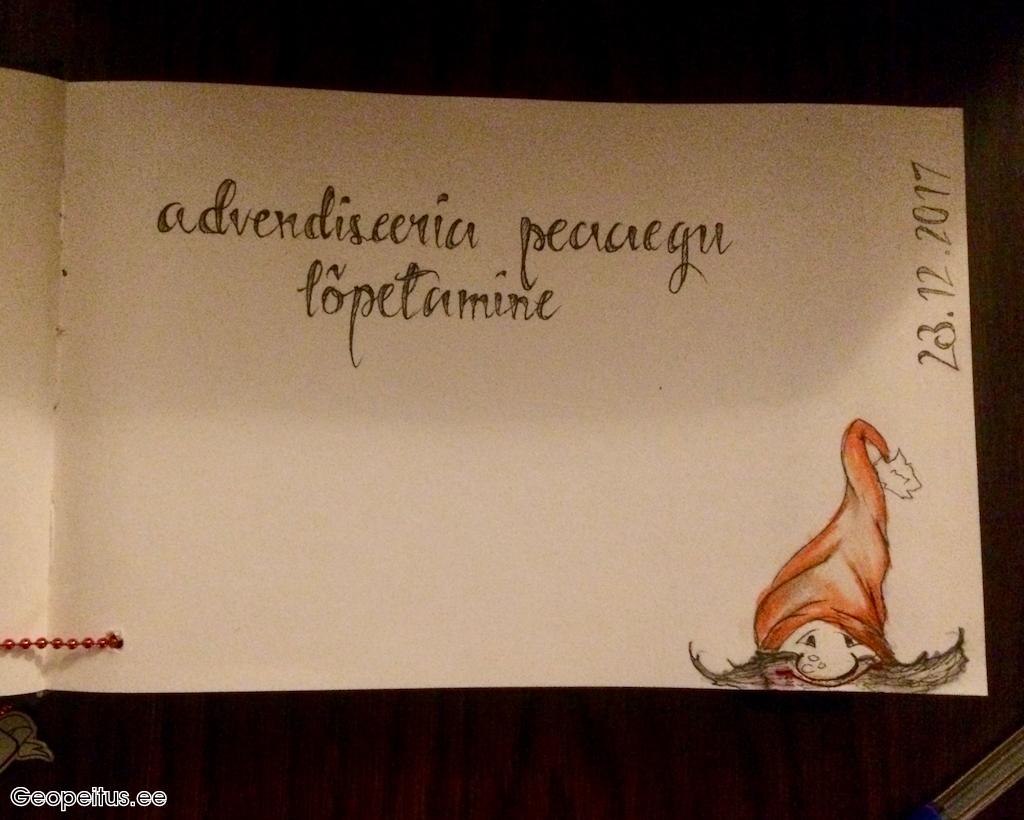 advendiseeria peaaegu
lõpetamine
23.12.2017
Geopeitus.ee